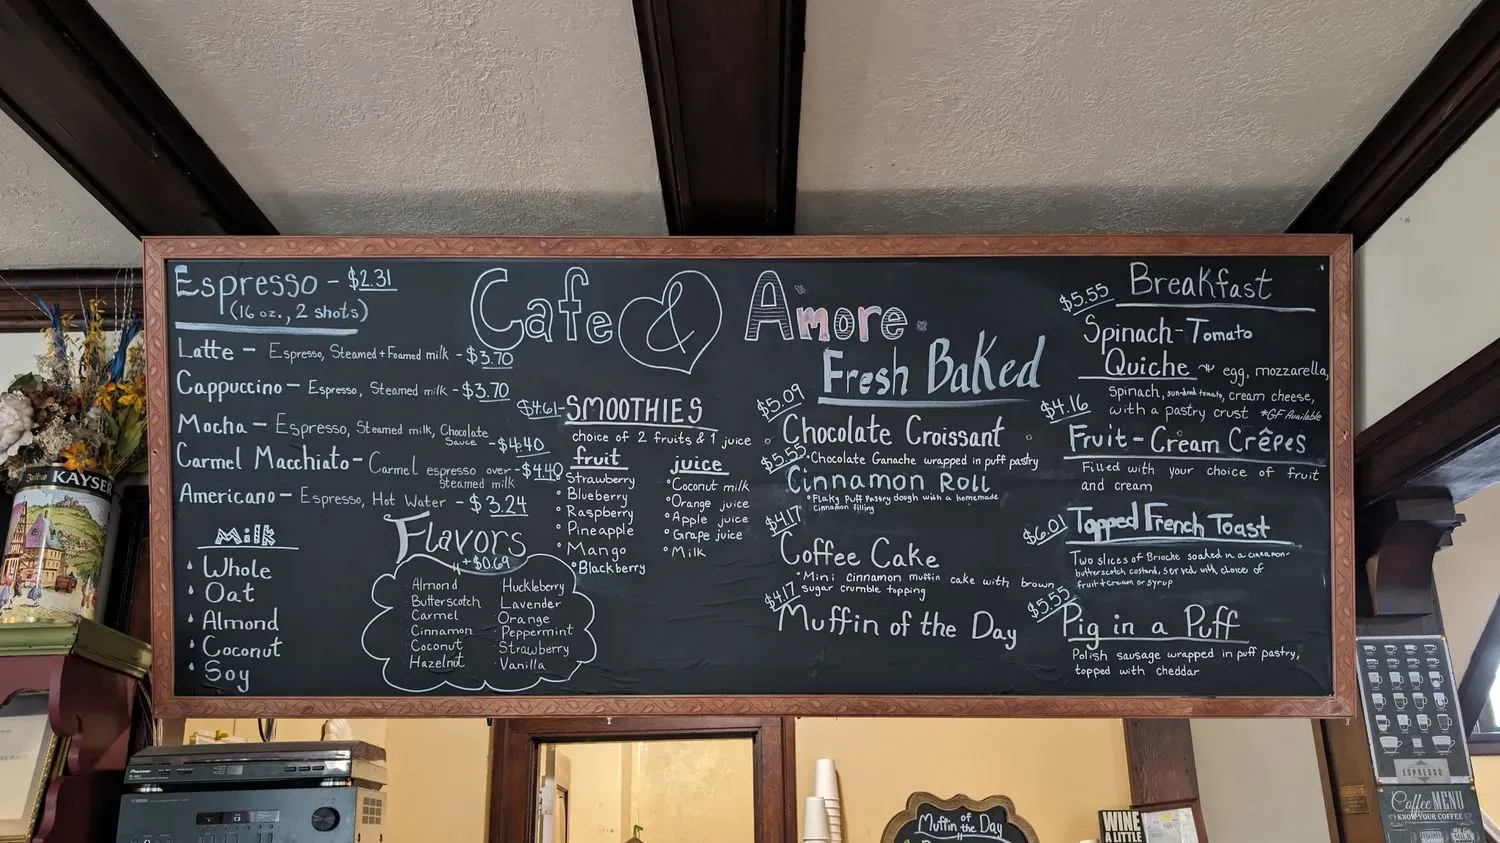 Cafe & Amore
Espresso - $2.31
(16 oz., 2 shots)
Latte - Espresso, Steamed + Foamed milk - $3.70
Cappuccino - Espresso, Steamed milk - $3.70
Mocha - Espresso, Steamed milk, Chocolate
Sauce - $4.40
Carmel Macchiato - Carmel espresso over - $4.40
steamed milk
Americano - Espresso, Hot Water - $3.24
Milk
• Whole
• Oat
• Almond
• Coconut
• Soy
Flavors
+$0.69
Almond
Butterscotch
Carmel
Cinnamon
Coconut
Hazelnut
Huckleberry
Lavender
Orange
Peppermint
Strawberry
Vanilla
$4.61 - SMOOTHIES
choice of 2 fruits & 1 juice
fruit
• Strawberry
• Blueberry
• Raspberry
• Pineapple
• Mango
• Blackberry
juice
• Coconut milk
• Orange juice
• Apple juice
• Grape juice
• Milk
Fresh Baked
$5.09
Chocolate Croissant
• Chocolate Ganache wrapped in puff pastry
$5.55
Cinnamon Roll
• Flaky Puff Pastry dough with a homemade
Cinnamon filling
$4.17
Coffee Cake
• Mini cinnamon muffin cake with brown
sugar crumble topping
$4.17
Muffin of the Day
Breakfast
$5.55
Spinach-Tomato
Quiche ~ egg, mozzarella,
spinach, sun-dried tomato, cream cheese,
with a pastry crust *GF Available
$4.16
Fruit-Cream Crêpes
Filled with your choice of fruit
and cream
$6.01
Topped French Toast
Two slices of Brioche soaked in a cinnamon-
butterscotch custard, served with choice of
fruit+cream or syrup
$5.55
Pig in a Puff
Polish sausage wrapped in puff pastry,
topped with cheddar
KAYSER
Pioneer
Muffin of the Day
WINE
A LITTLE
ESPRESSO
Coffee MENU
KNOW YOUR COFFEE